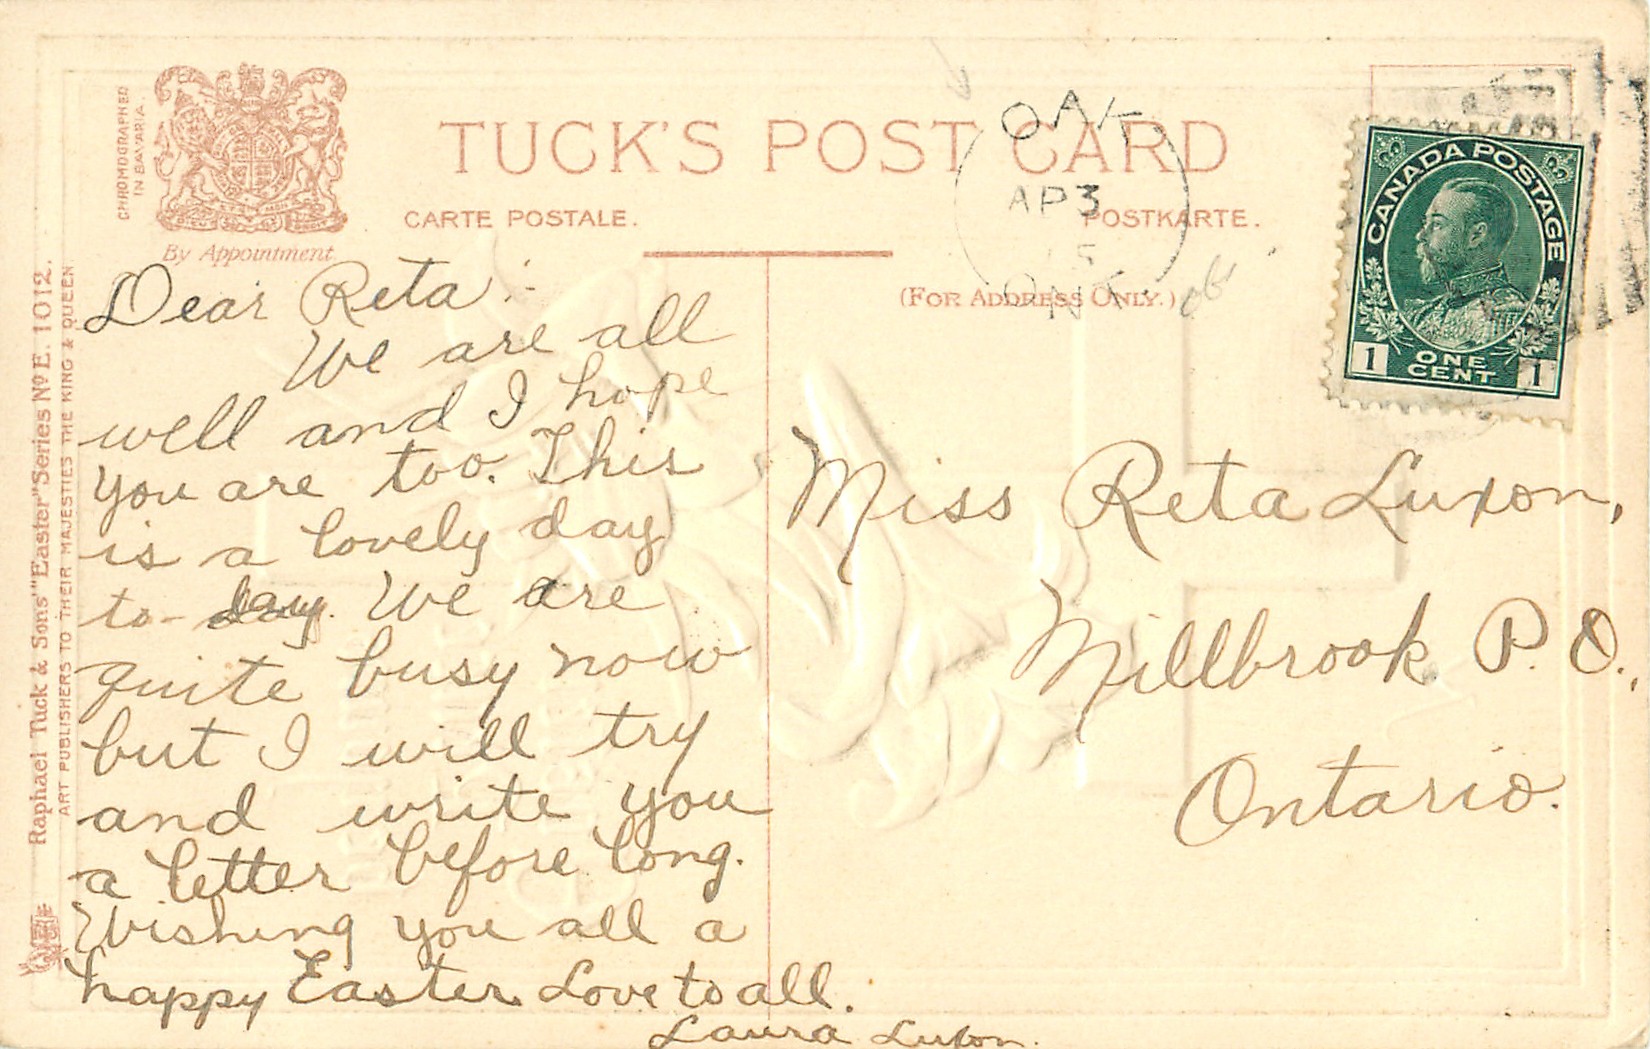 CHROMOGRAPHED
IN BAVARIA.
By Appointment
TUCK'S POST CARD
CARTE POSTALE.
POSTKARTE.
(FOR ADDRESS ONLY.)
Raphael Tuck & Sons' "Easter" Series No E. 1012.
ART PUBLISHERS TO THEIR MAJESTIES THE KING & QUEEN
OAK
AP 3
ONT
CANADA POSTAGE
1 ONE CENT 1
Dear Reta:-
We are all
well and I hope
you are too. This
is a lovely day
to-day. We are
quite busy now
but I will try
and write you
a letter before long.
Wishing you all a
happy Easter. Love to all.
Laura Luxon.
Miss Reta Luxon,
Millbrook P.O.,
Ontario.